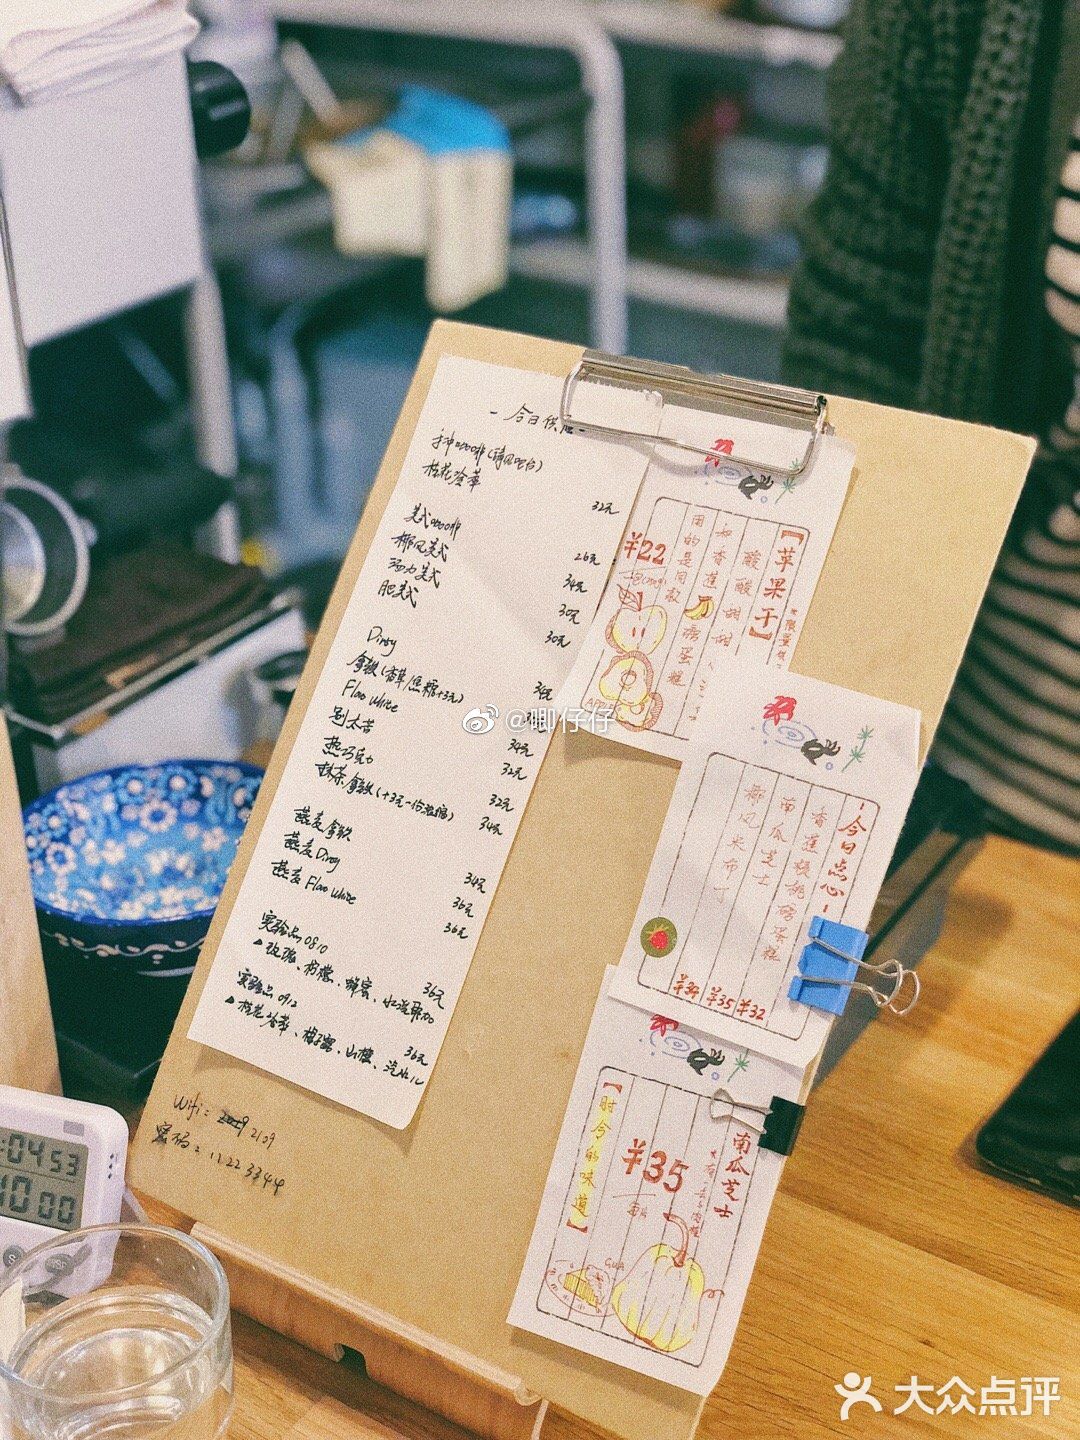 一 今日供应 一
手冲coffee(请问吧台)
桂花冷萃 32元
美式coffee 26元
椰风美式 34元
活力美式 30元
肥美式 30元
Dirty 34元
拿铁(香草/焦糖+3元)
Flat White 34元
别太苦 32元
热巧克力 32元
抹茶拿铁(+3元一份浓缩) 34元
燕麦拿铁 34元
燕麦Dirty 36元
燕麦Flat White 36元
实验品0810
玫瑰、柠檬、蜂蜜、 36元
实验品0912
桂花冷萃、梅子露、山楂、汽水 36元
Wifi: 2109
密码: 11223344
【苹果干】
酸酸甜甜
和香蕉
用的是同款
¥22
APPLE
-今日点心-
香蕉核桃磅蛋糕 ¥32
南瓜芝士 ¥35
椰风米布丁 ¥34
南瓜芝士
¥35
【时令的味道】
@唧仔仔
大众点评